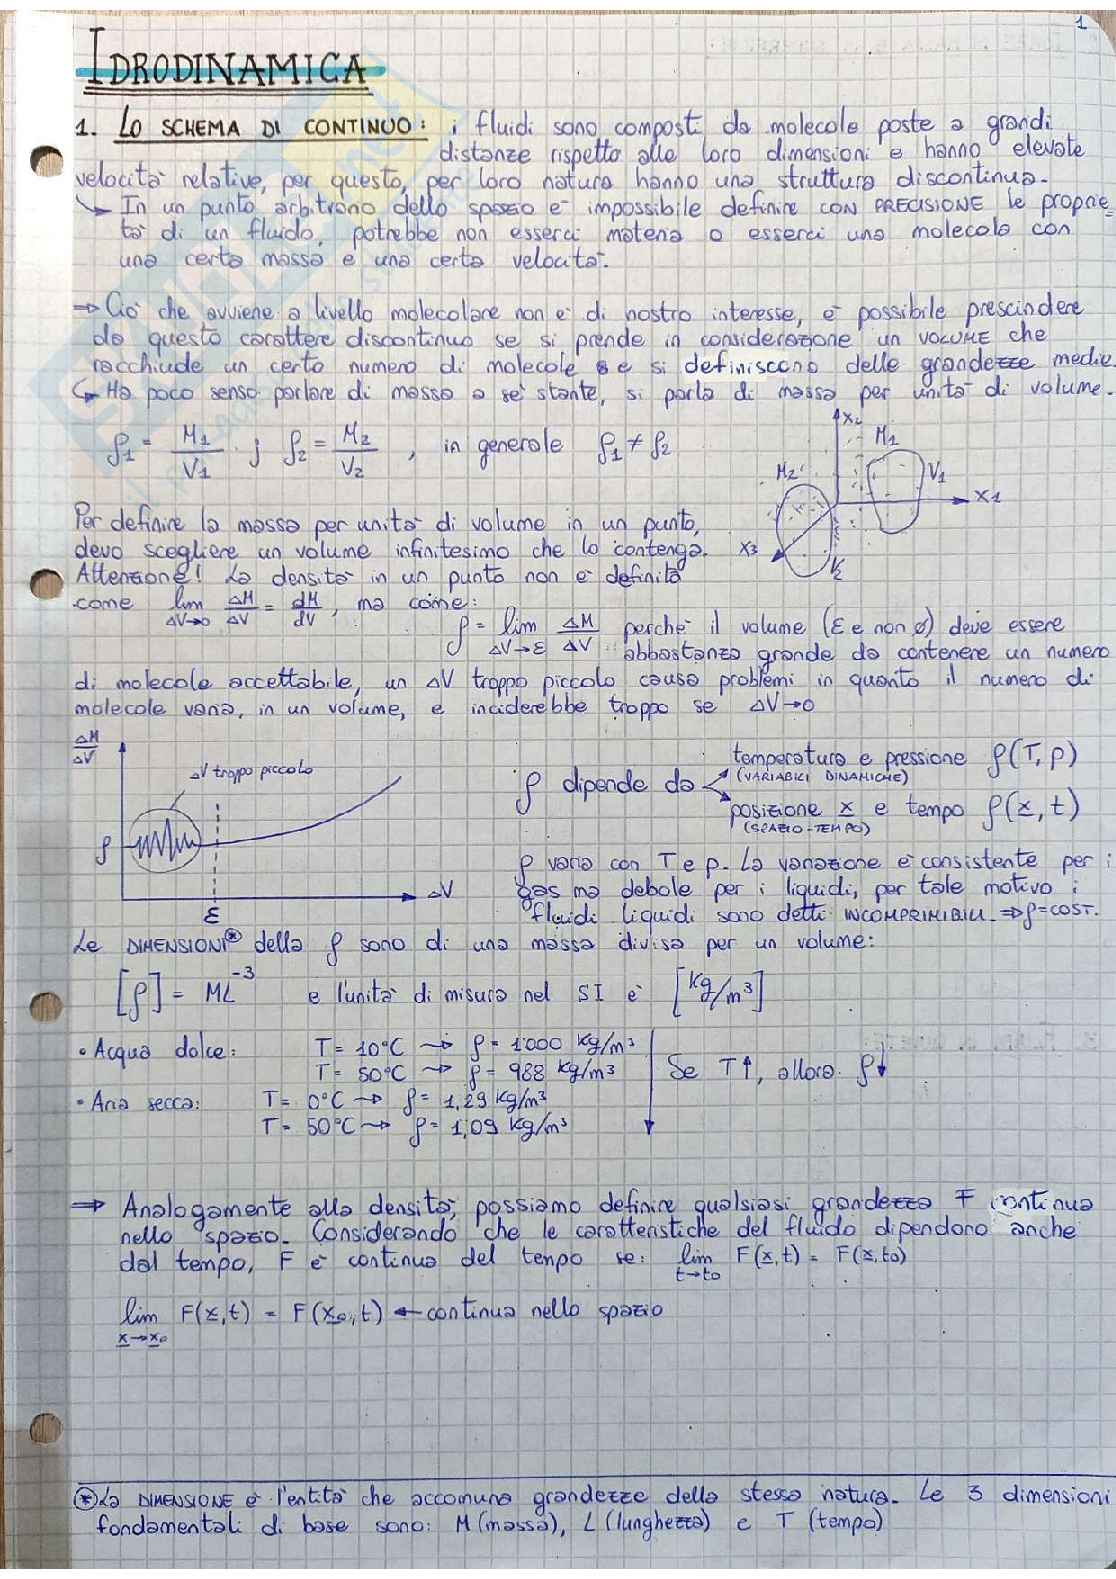 1
IDRODINAMICA
1. LO SCHEMA DI CONTINUO: i fluidi sono composti da molecole poste a grandi
distanze rispetto alle loro dimensioni e hanno elevate
velocità relative, per questo, per loro natura hanno una struttura discontinua.
↳ In un punto arbitrario dello spazio è impossibile definire CON PRECISIONE le proprie=
tà di un fluido, potrebbe non esserci materia o esserci una molecola con
una certa massa e una certa velocità.
⇒ Ciò che avviene a livello molecolare non è di nostro interesse, è possibile prescindere
da questo carattere discontinuo se si prende in considerazione un VOLUME che
racchiude un certo numero di molecole e si definiscono delle grandezze medie.
↳ Ha poco senso parlare di massa a sé stante, si parla di massa per unità di volume.
ρ1 = M1/V1 ; ρ2 = M2/V2 , in generale ρ1 ≠ ρ2
X2 M1 V1 X1 M2 X3 V2
Per definire la massa per unità di volume in un punto,
devo scegliere un volume infinitesimo che lo contenga.
Attenzione! La densità in un punto non è definita
come lim ΔV→0 ΔM/ΔV = dM/dV, ma come:
ρ = lim ΔV→ε ΔM/ΔV perché il volume (ε e non ∅) deve essere
abbastanza grande da contenere un numero
di molecole accettabile, un ΔV troppo piccolo causa problemi in quanto il numero di
molecole varia, in un volume, e inciderebbe troppo se ΔV→0
ΔM/ΔV
ΔV troppo piccolo
ρ
ε
ΔV
ρ dipende da
temperatura e pressione ρ(T,p)
(VARIABILI DINAMICHE)
posizione x e tempo ρ(x,t)
(SPAZIO-TEMPO)
ρ varia con T e p. La variazione è consistente per i
gas ma debole per i liquidi, per tale motivo i
fluidi liquidi sono detti INCOMPRIMIBILI. ⇒ρ=COST.
Le DIMENSIONI⊛ della ρ sono di una massa divisa per un volume:
[ρ] = ML⁻³ e l'unità di misura nel SI è [kg/m³]
• Acqua dolce: T= 10°C → ρ= 1000 kg/m³
T= 50°C → ρ= 988 kg/m³
Se T↑, allora ρ↓
• Aria secca: T= 0°C → ρ= 1,29 kg/m³
T= 50°C → ρ= 1,09 kg/m³
⇒ Analogamente alla densità, possiamo definire qualsiasi grandezza F continua
nello spazio. Considerando che le caratteristiche del fluido dipendono anche
dal tempo, F è continua del tempo se: lim t→t0 F(x,t) = F(x,t0)
lim x→x0 F(x,t) = F(x0,t) ← continua nello spazio
⊛ La DIMENSIONE è l'entità che accomuna grandezze della stessa natura. Le 3 dimensioni
fondamentali di base sono: M (massa), L (lunghezza) e T (tempo)